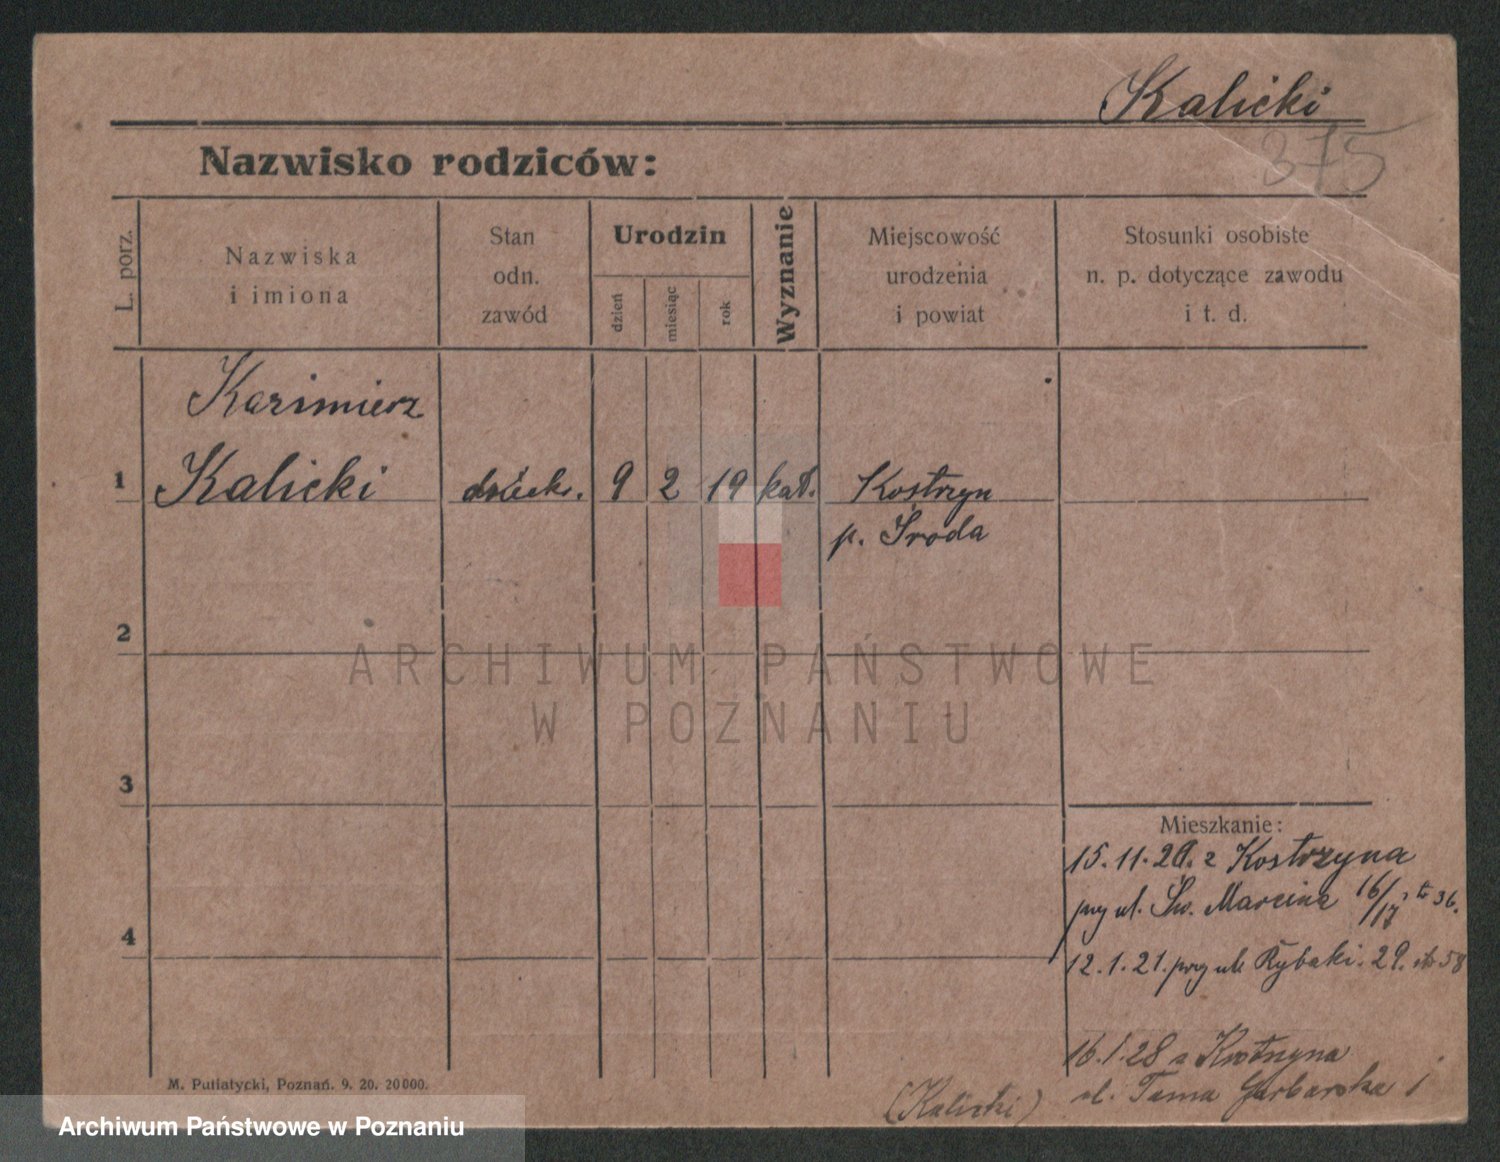 Kalicki
375
Nazwisko rodziców:
L. porz.
Nazwiska
i imiona
Stan
odn.
zawód
Urodzin
dzień
miesiąc
rok
Wyznanie
Miejscowość
urodzenia
i powiat
Stosunki osobiste
n. p. dotyczące zawodu
i t. d.
Kazimierz
1 Kalicki dziecko. 9 2 19 kat. Kostrzyn
p. Środa
2
ARCHIWUM PAŃSTWOWE
W POZNANIU
3
Mieszkanie:
15.11.20. z Kostrzyna
przy ul. Św. Marcina 16/17, 36.
4
12.1.21. przy ul. Rybaki. 29. 58
16.1.28 z Kostrzyna
ul. Tama Garbarska 1
(Kalicki)
M. Putiatycki, Poznań. 9. 20. 20000.
Archiwum Państwowe w Poznaniu